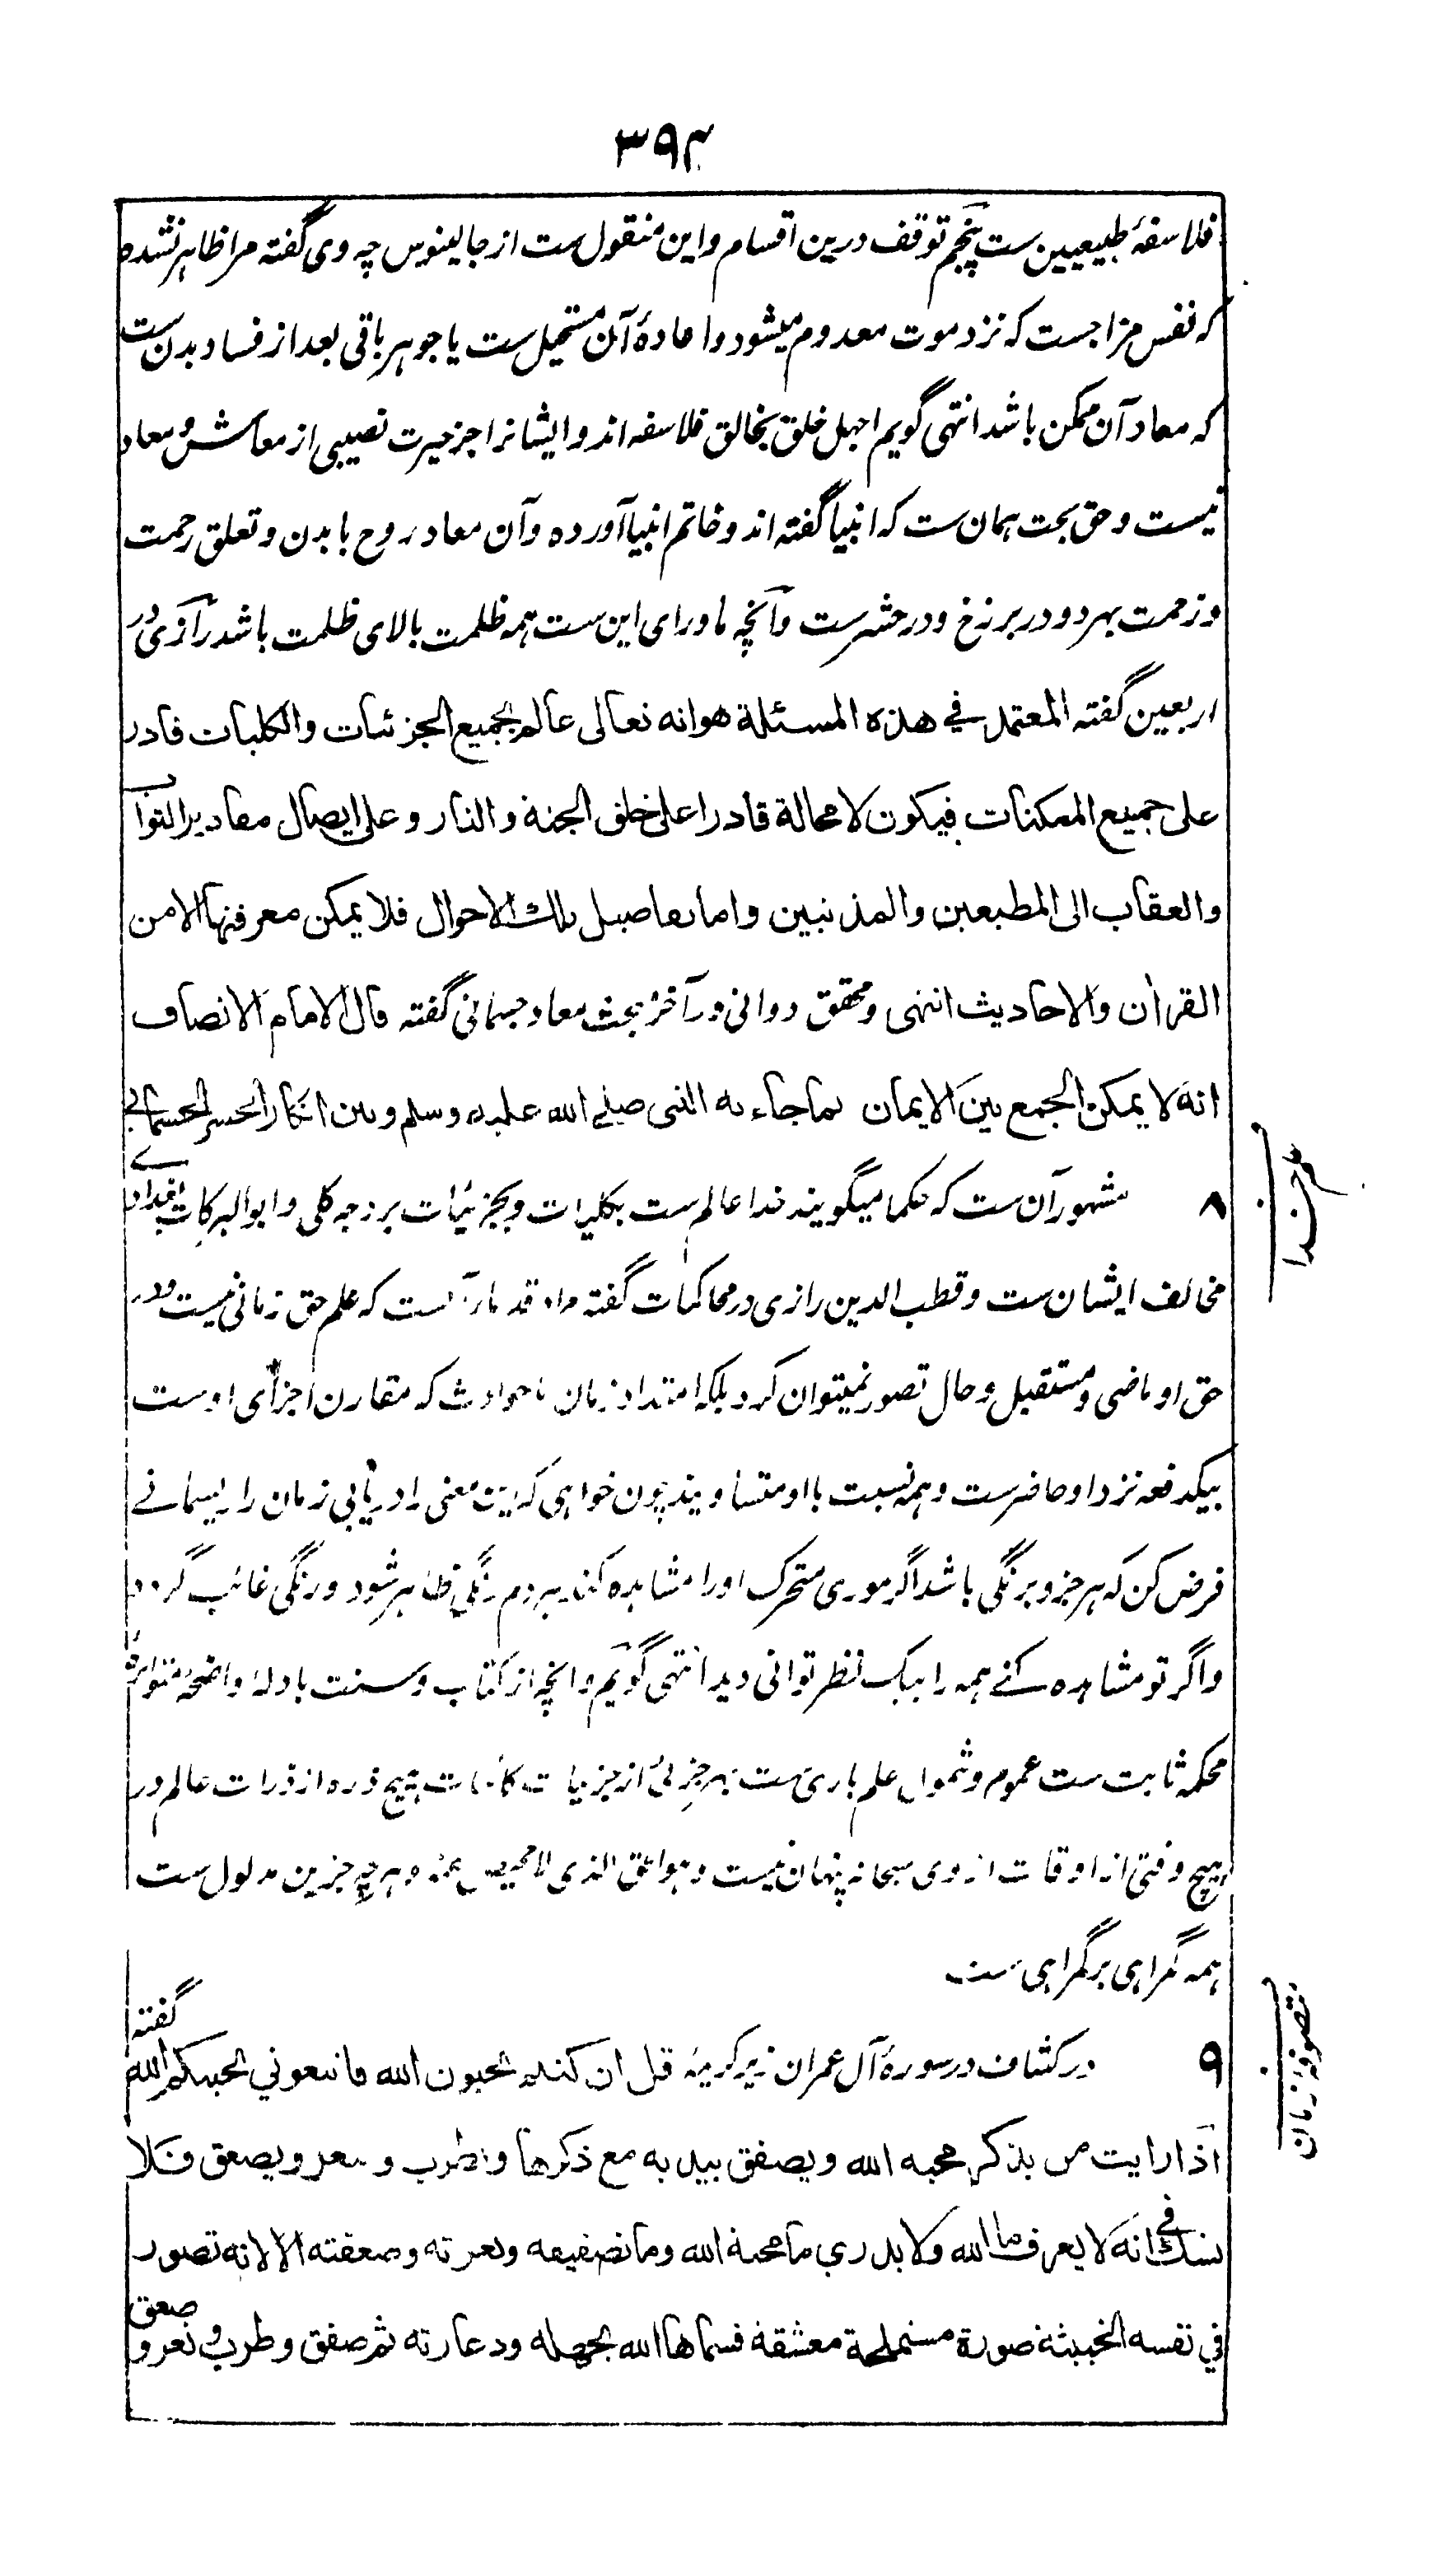 ۳۹۴
فلاسفۂ طبیعیین ست پنجم توقف درین اقسام و این منقول ست از جالینوس چه وی گفته مرا ظاهر نشده
که نفس مزاجست که نزد موت معدوم میشود و اعادۂ آن مستحیل ست یا جوهر باقی بعد از فساد بدن ست
که معاد آن ممکن باشد انتهی گویم اجهل خلق بخالق فلاسفه اند و ایشانرا جز حیرت نصیبی از معاش و معاد
نیست و حق بحت همان ست که انبیا گفته اند و خاتم انبیا آورده و آن معاد روح با بدن و تعلق رحمت
و زحمت بهر دو در برزخ و در حشر ست و آنچه ماورای این ست همه ظلمت بالای ظلمت باشد رازی در
اربعین گفته المعتمد في هذه المسئلة هو انه تعالى عالم بجميع الجزئيات والكليات قادر
على جميع الممكنات فيكون لا محالة قادرا على خلق الجنة والنار وعلى ايصال مقادير الثواب
والعقاب الى المطيعين والمذنبين واما تفاصيل تلك الاحوال فلا يمكن معرفتها الا من
القران والاحاديث انتهى و محقق دوانی در آخر بحث معاد جسمانی گفته قال الامام الانصاف
انه لا يمكن الجمع بين الايمان بما جاء به النبي صلى الله عليه وسلم وبين انكار الحشر الجسماني
علم خدا
۸ مشهور آن ست که حکما میگویند خدا عالم ست بکلیات و بجزئیات بر وجه کلی و ابو البرکات بغدادی
مخالف ایشان ست و قطب الدین رازی در محاکمات گفته مراد قدما آنست که علم حق زمانی نیست و در
حق او ماضی و مستقبل و حال تصور نمیتوان کرد بلکه امتداد زمان با حوادث که مقارن اجزای اوست
بیکدفعه نزد او حاضر ست و همه نسبت با او متساویند چون خواهی که این معنی را دریابی زمان را ریسمانے
فرض کن که هر جزو برنگی باشد اگر موری متحرک اورا مشاهده کند هر دم رنگی ظاهر شود و رنگی غائب گردد
و اگر تو مشاهده کنے همه را بیک نظر توانی دید انتهی گویم و انچه از کتاب و سنت بادلۂ واضحۂ متواترۂ
محکمه ثابت ست عموم و شمول علم باری ست بهر جزئی از جزئیات کائنات هیچ ذره از ذرات عالم در
هیچ وقتی از اوقات از وی سبحانه پنهان نیست و هو الحق الذی لا محیص عنه و هر چه جز این مدلول ست
همه گمراهی بر گمراهی ست
متصوفۂ زمان
۹ در کشاف در سورۂ آل عمران زیر کریمۂ قل ان كنتم تحبون الله فاتبعوني يحببكم الله گفته
اذا رايت من يذكر محبة الله ويصفق بيديه مع ذكرها ويطرب وينعر ويصعق فلا
تشك في انه لا يعرف ما الله ولا يدري ما محبة الله وما تصفيقه وطربه ونعرته وصعقته الا لانه تصور
في نفسه الخبيثة صورة مستملحة معشقة فسماها الله بجهله ودعارته ثم صفق وطرب ونعر وصعق